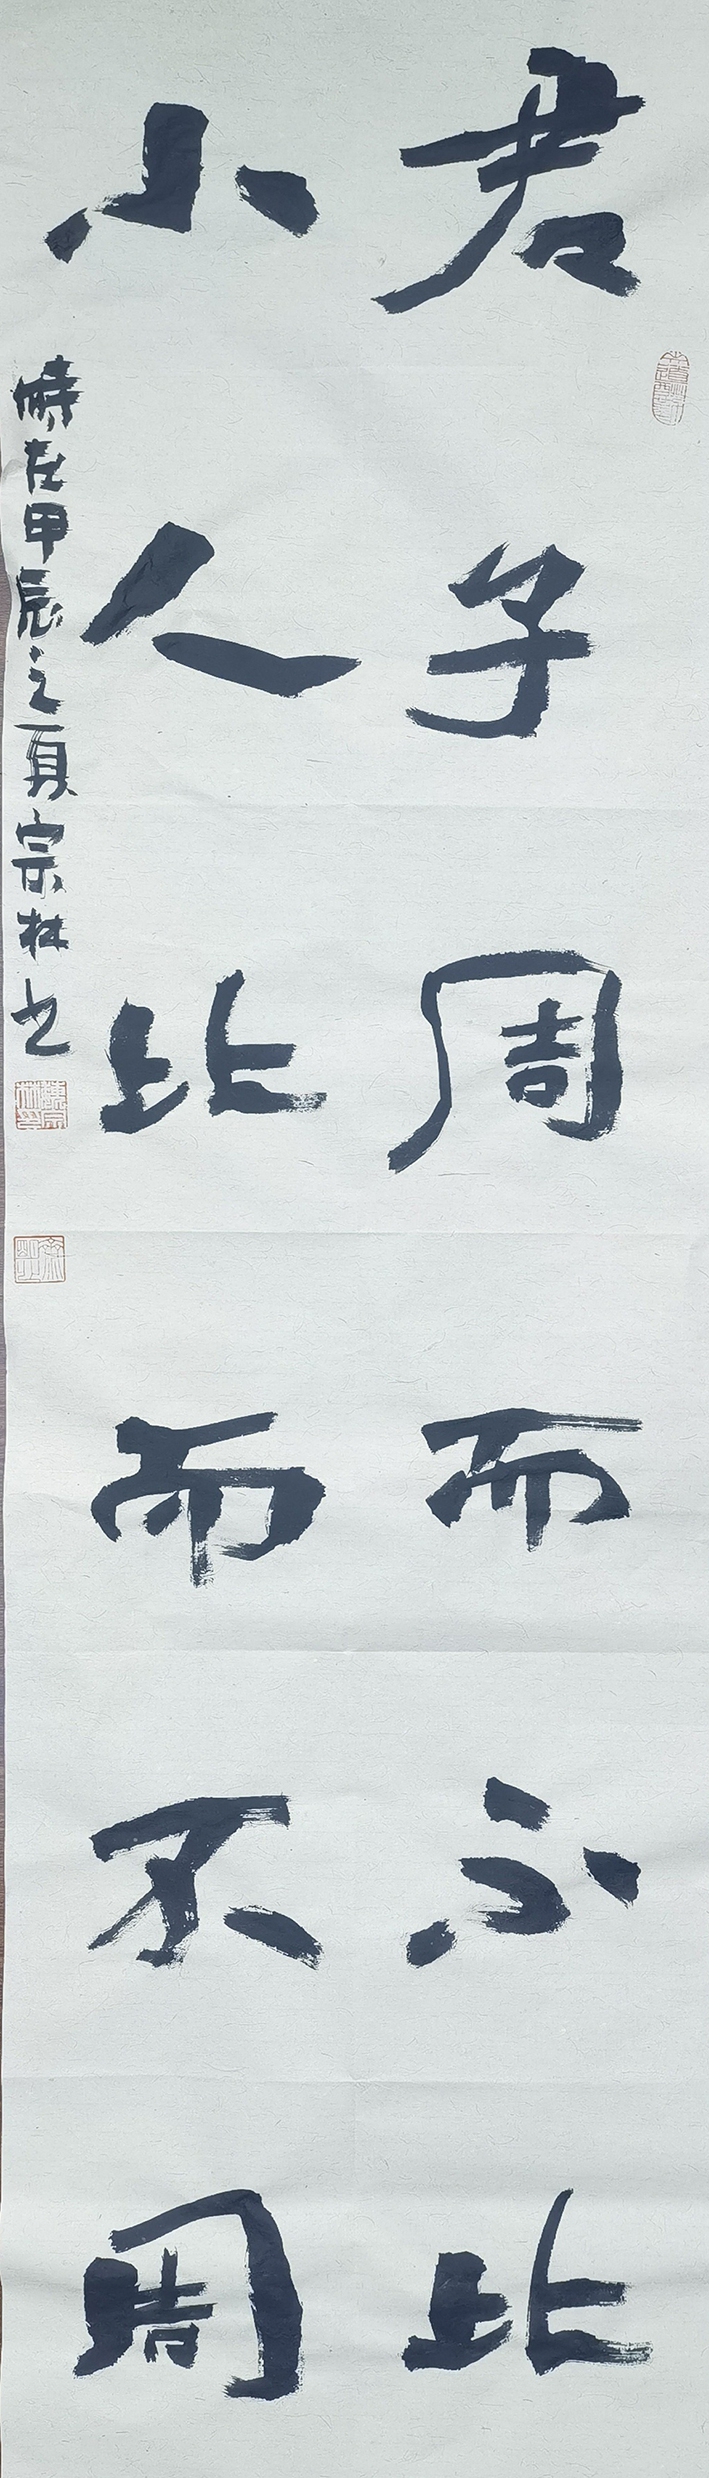 君子周而不比
小人比而不周
時在甲辰之夏宗林書